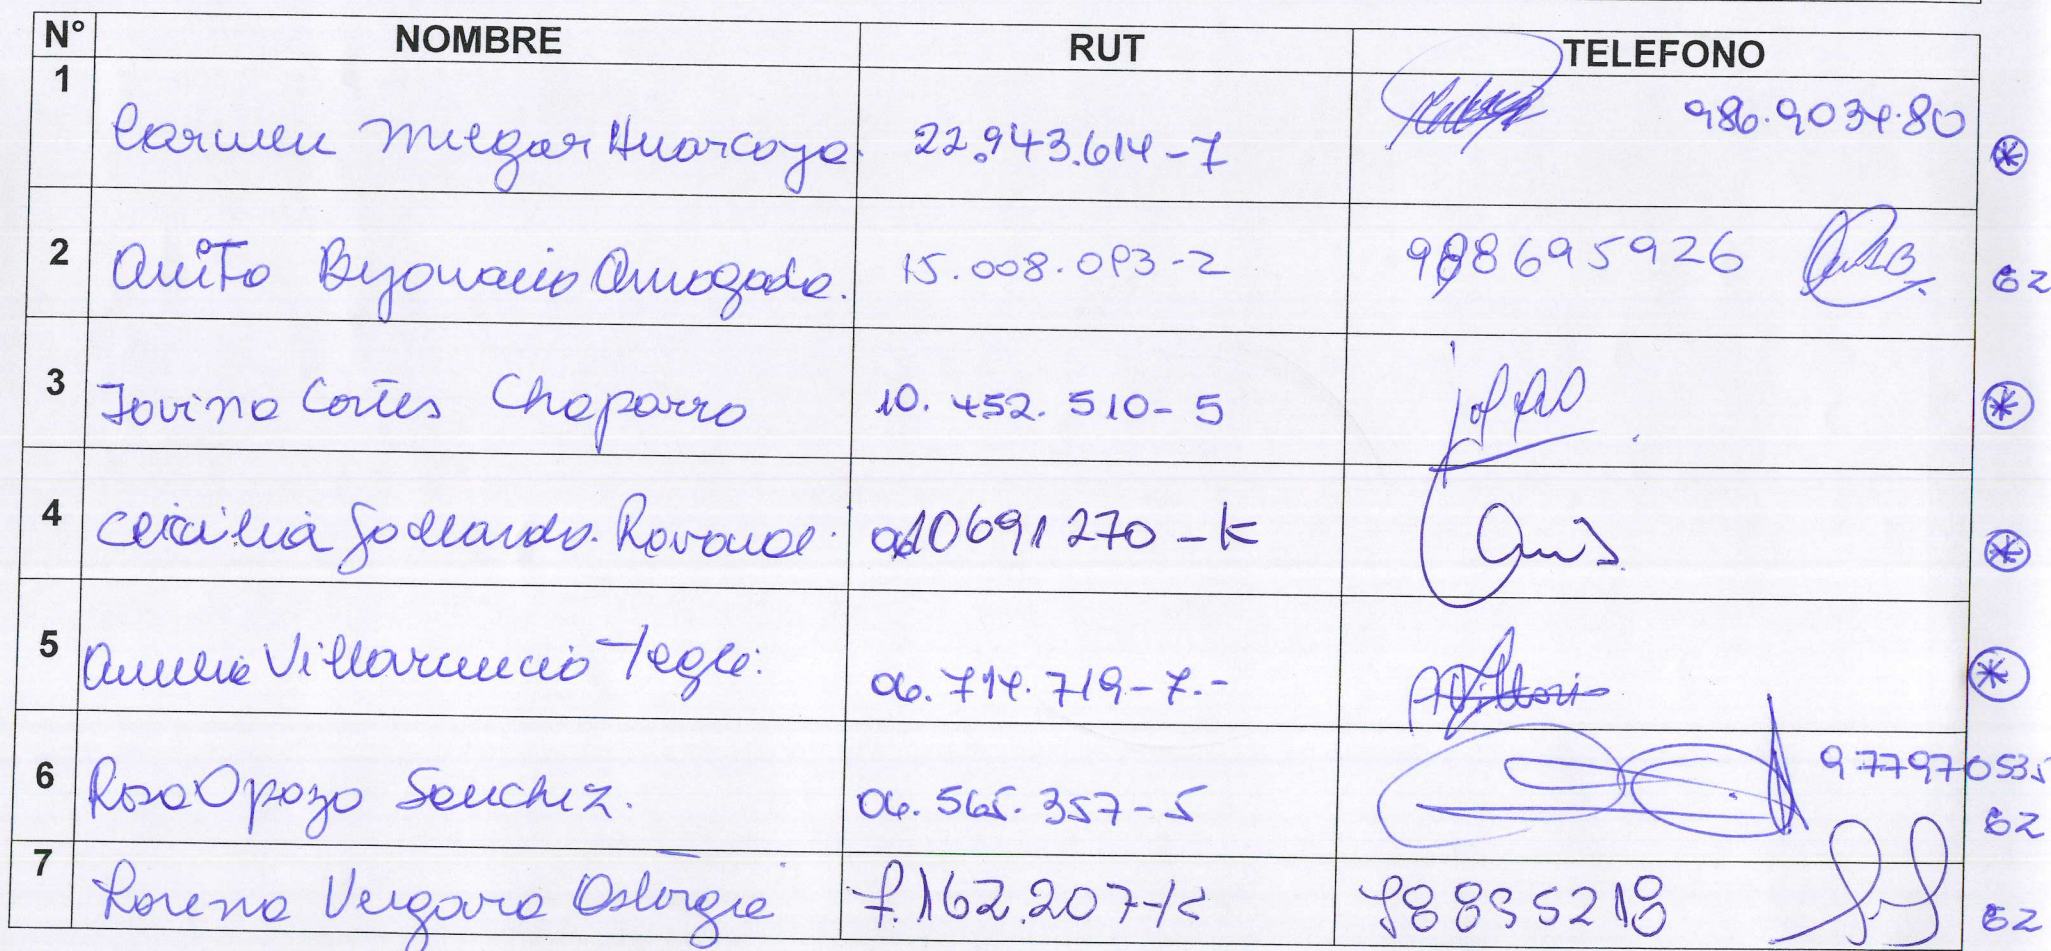 N° NOMBRE RUT TELEFONO
1 Carmen Melgar Huarcaya. 22.943.614-7 986.9034.80
2 Anita Bejarano 15.008.093-2 988695926 62
3 Jovina Cortés Chaparro 10.452.510-5
4 Cecilia Gallardo. 10691270-K
5 Amelia Villavicencio Tegle. 06.714.719-7.-
6 Rosa Opazo Sanchez. 06.565.357-5 977970535 62
7 Lorena Vergara 7.162.207-K 98895218 62